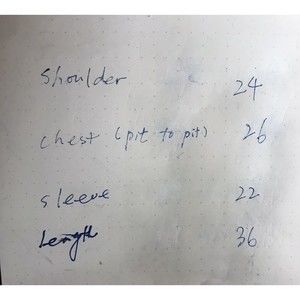 shoulder 24
chest (pit to pit) 26
sleeve 22
Length 36